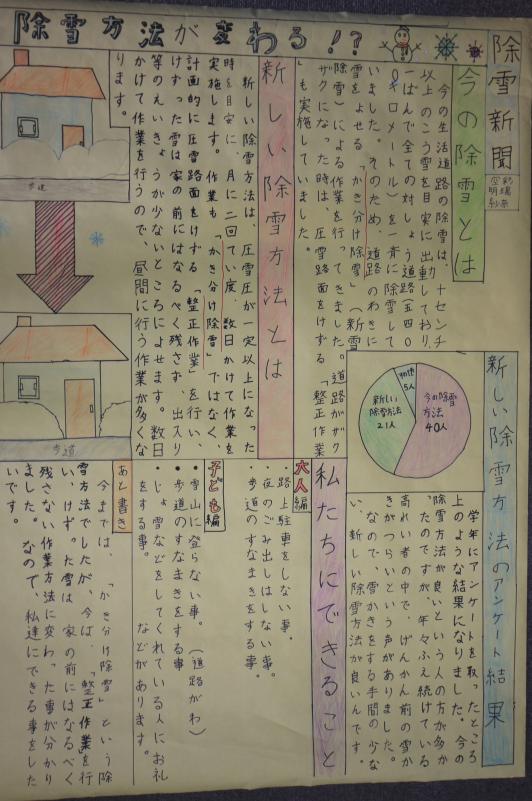 除雪方法が変わる!?
除雪新聞
今の除雪とは
今の生活道路の除雪は、十センチ
以上のこう雪を目安に出動しており、
一ばんで全ての対しょう道路(五四〇
〇キロメートル)を一斉に除雪して
いました。そのため、道路のわきに
雪をよせる「かき分け除雪」(新雪
除雪)による作業を行ってきました。道路がザク
ザクになった時は、圧雪路面をけずる「整正作業
」も実施していました。
新しい除雪方法とは
新しい除雪方法は、圧雪圧が一定以上になった
時を目安に、月に二回てい度、数日かけて作業を
実施します。作業も「かき分け除雪」ではなく、
計画的に圧雪路面をけずる「整正作業」を行い、
けずった雪は家の前にはなるべく残さず、出入り
等のえいきょうが少ないところによせます。数日
かけて作業を行うので、昼間に行う作業が多くな
ります。
歩道
歩道
新しい除雪方法のアンケート結果
今の除雪
方法
40人
新しい
除雪方法
21人
5人
学年にアンケートを取ったところ
上のような結果になりました。今の
除雪方法が良いという人の方が多か
ったのですが、年々ふえ続けている
高れい者の中で、げんかん前の雪か
きがつらいという声がありました。
なので、雪かきをする手間の少な
い、新しい除雪方法が良いんです。
私たちにできること
大人編
・路上駐車をしない事。
・夜のごみ出しはしない事。
・歩道のすなまきをする事。
子ども編
●雪山に登らない事。(道路がわ)
●歩道のすなまきをする事
●じょ雪などをしてくれている人にお礼
をする事。
などがあります。
あと書き
今までは、「かき分け除雪」という除
雪方法でしたが、今は、「整正作業」を行
い、けずった雪は家の前にはなるべく
残さない作業方法に変わった事が分かり
ました。なので、私達にできる事をした
いです。